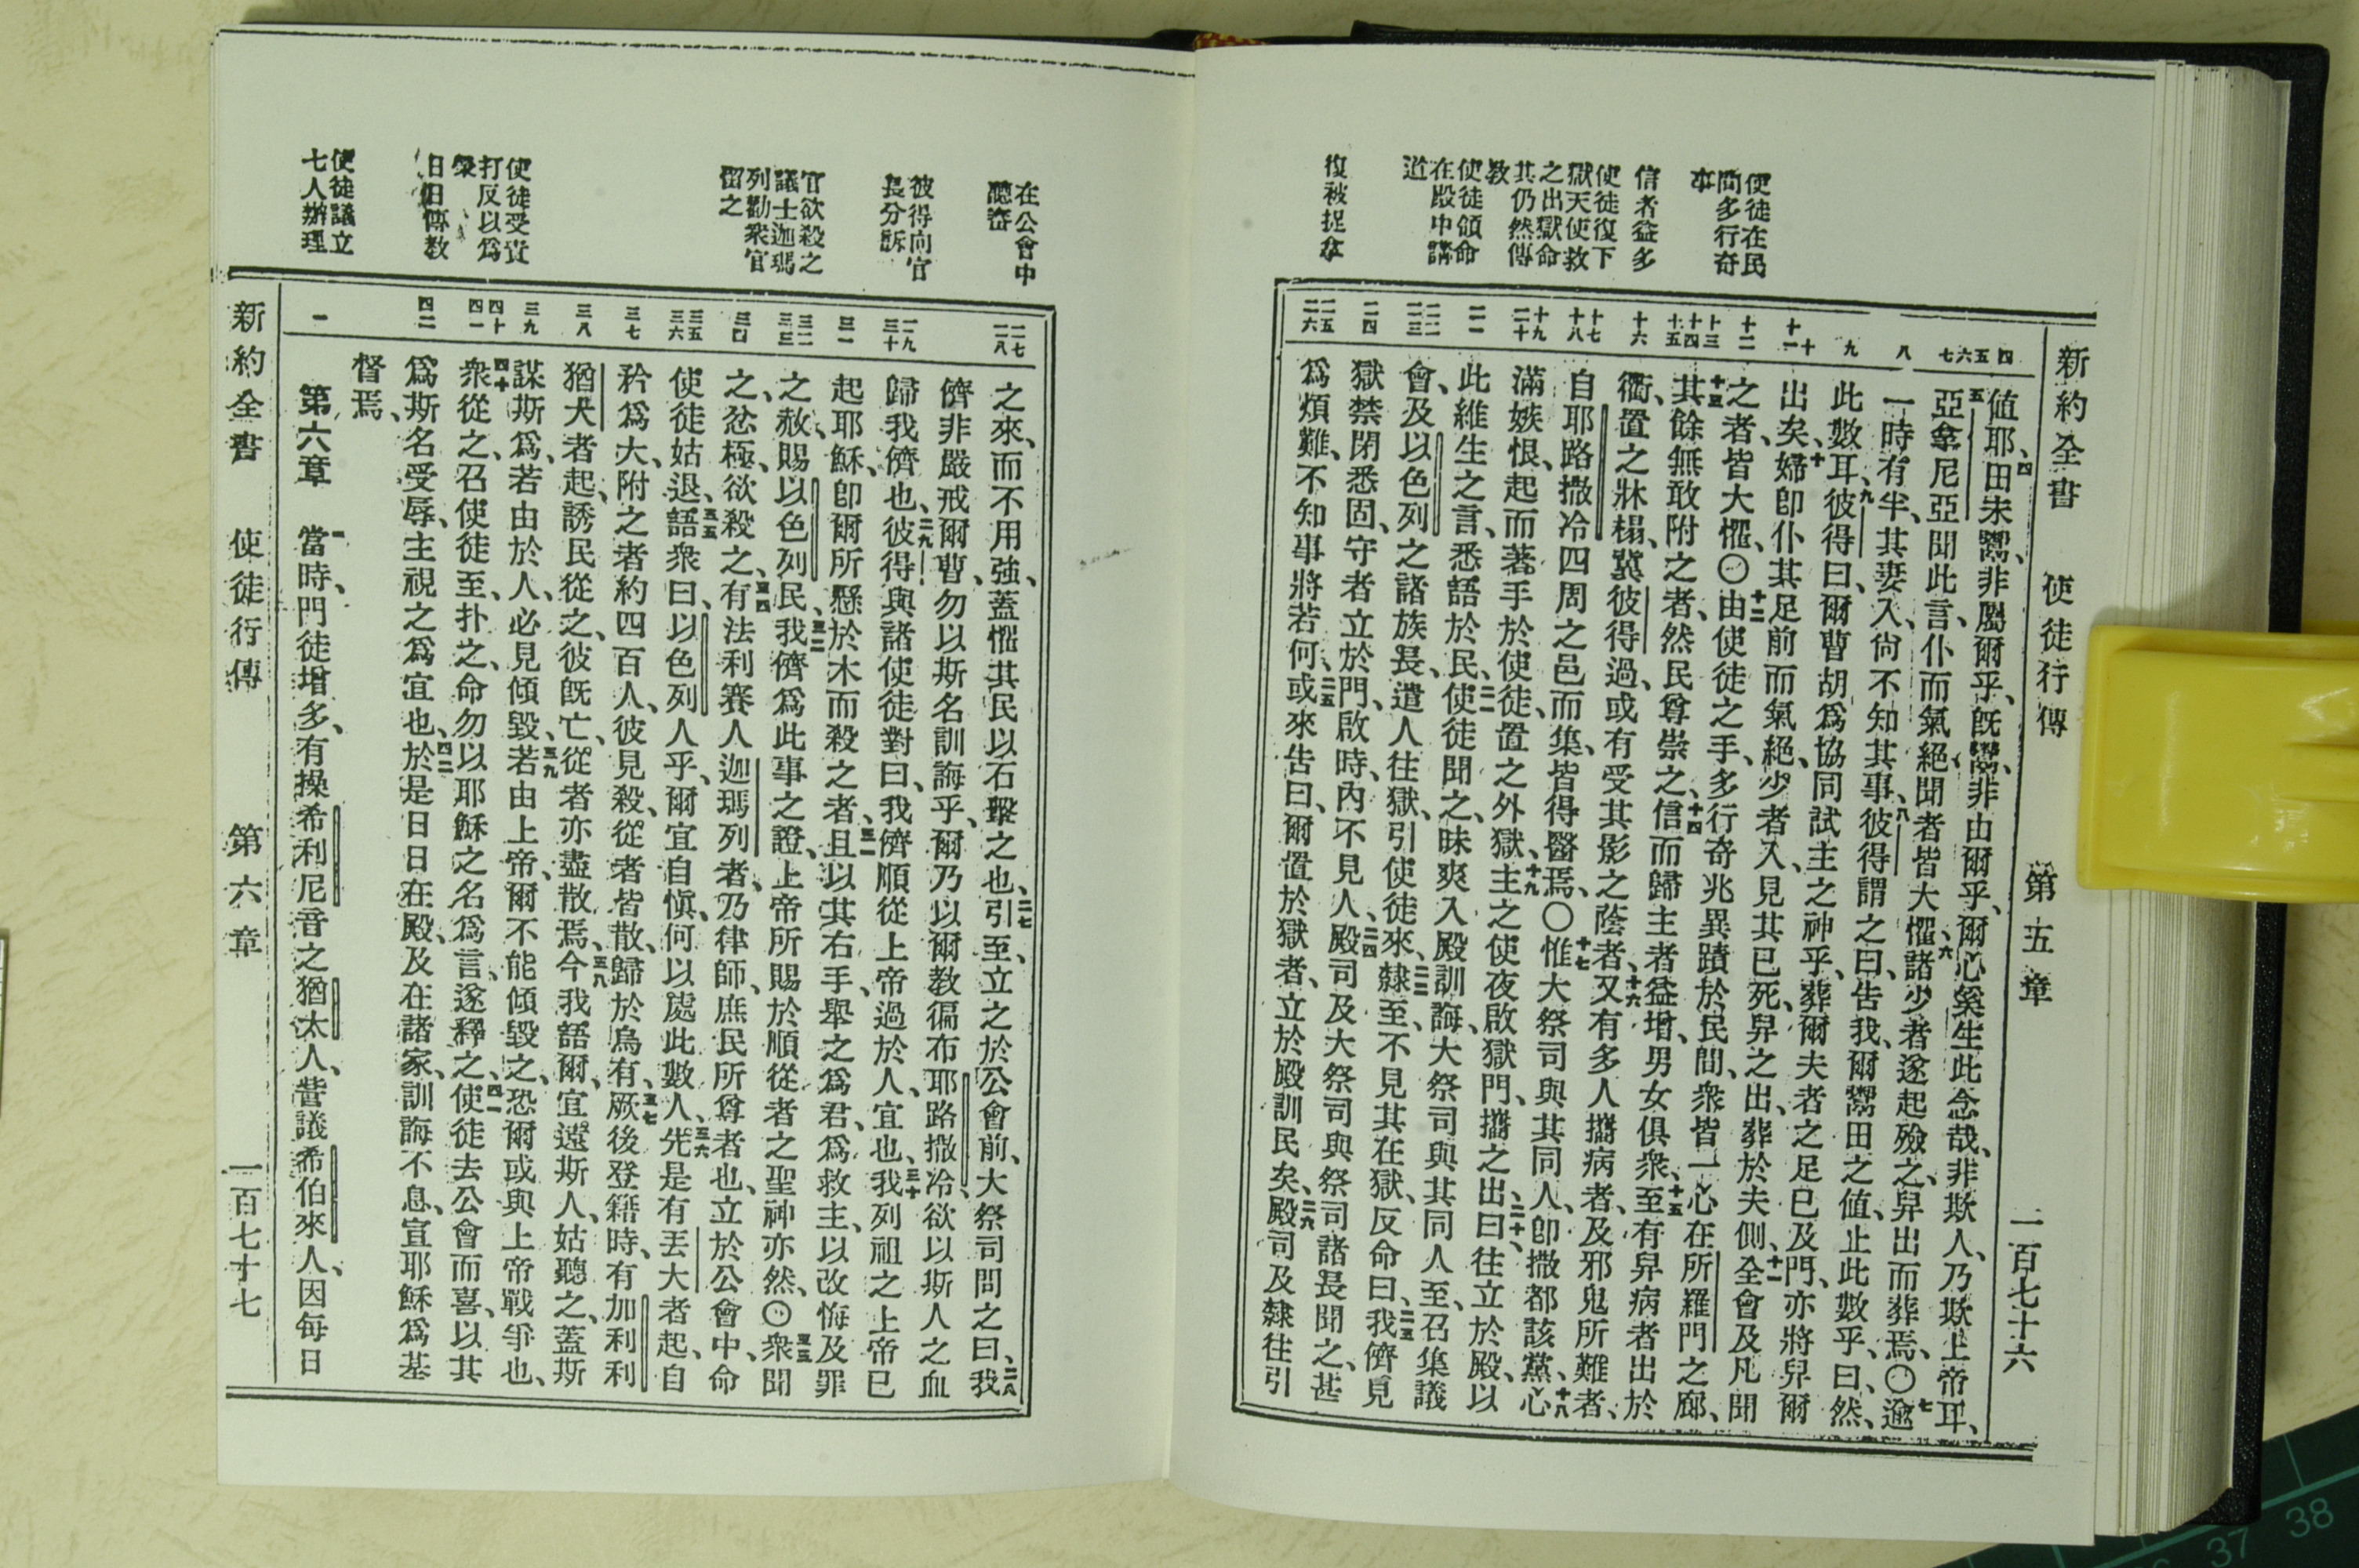 新約全書 使徒行傳 第五章 二百七十六
使徒在民
間多行奇
事
信者益多
使徒復下
獄天使救
之出獄命
其仍然傳
教
使徒領命
在殿中講
道
復被捉拿
四
五
六
七
八
九
十
十一
十二
十三
十四
十五
十六
十七
十八
十九
二十
二一
二二
二三
二四
二五
二六
値耶、四田未鬻、非屬爾乎、旣鬻、非由爾乎、爾心奚生此念哉、非欺人、乃欺上帝耳、
五亞拿尼亞聞此言、仆而氣絕、聞者皆大懼、六諸少者遂起殮之、舁出而葬焉、〇七逾
一時有半、其妻入、尙不知其事、八彼得謂之曰、吿我、爾鬻田之値、止此數乎、曰、然、
此數耳、九彼得曰、爾曹胡爲協同試主之神乎、葬爾夫者之足已及門、亦將舁爾
出矣、十婦卽仆其足前而氣絕、少者入、見其已死、舁之出、葬於夫側、十一全會及凡聞
之者、皆大懼、〇十二由使徒之手、多行奇兆異蹟於民間、衆皆一心在所羅門之廊、
十三其餘無敢附之者、然民尊崇之、十四信而歸主者益增、男女俱衆、十五至有舁病者出於
衢、置之牀榻、冀彼得過、或有受其影之蔭者、十六又有多人攜病者、及邪鬼所難者、
自耶路撒冷四周之邑而集、皆得醫焉、〇十七惟大祭司與其同人、卽撒都該黨、十八心
滿嫉恨、起而著手於使徒、置之外獄、十九主之使夜啟獄門、攜之出、曰、二十往立於殿、以
此維生之言、悉語於民、二一使徒聞之、昧爽入殿訓誨、大祭司與其同人至、召集議
會、及以色列之諸族長、遣人往獄、引使徒來、二二隸至、不見其在獄、反命曰、二三我儕見
獄禁閉悉固、守者立於門、啟時、內不見人、二四殿司及大祭司與祭司諸長聞之、甚
爲煩難、不知事將若何、二五或來吿曰、爾置於獄者、立於殿訓民矣、二六殿司及隸往引
在公會中
聽審
彼得向官
長分訴
官欲殺之
議士迦瑪
列勸衆官
留之
使徒受責
打反以爲
榮
日日傳教
使徒議立
七人辦理
二七
二八
二九
三十
三一
三二
三三
三四
三五
三六
三七
三八
三九
四十
四一
四二
一
之來、而不用強、蓋懼其民以石擊之也、二七引至、立之於公會前、大祭司問之曰、二八我
儕非嚴戒爾曹、勿以斯名訓誨乎、爾乃以爾教徧布耶路撒冷、欲以斯人之血
歸我儕也、二九彼得與諸使徒對曰、我儕順從上帝過於人、宜也、三十我列祖之上帝已
起耶穌、卽爾所懸於木而殺之者、三一且以其右手、舉之爲君、爲救主、以改悔及罪
之赦、賜以色列民、三二我儕爲此事之證、上帝所賜於順從者之聖神亦然、〇三三衆聞
之、忿極、欲殺之、三四有法利賽人迦瑪列者、乃律師、庶民所尊者也、立於公會中、命
使徒姑退、三五語衆曰、以色列人乎、爾宜自愼、何以處此數人、三六先是有丟大者起、自
矜爲大、附之者約四百人、彼見殺、從者皆散、歸於烏有、三七厥後登籍時、有加利利
猶大者起、誘民從之、彼旣亡、從者亦盡散焉、三八今我語爾、宜遠斯人、姑聽之、蓋斯
謀斯爲、若由於人、必見傾毀、三九若由上帝、爾不能傾毀之、恐爾或與上帝戰爭也、
四十衆從之、召使徒至、扑之、命勿以耶穌之名爲言、遂釋之、四一使徒去公會而喜、以其
爲斯名受辱、主視之爲宜也、四二於是日日在殿、及在諸家、訓誨不息、宣耶穌爲基
督焉、
第六章 一當時、門徒增多、有操希利尼音之猶太人、訾議希伯來人、因每日
新約全書 使徒行傳 第六章 二百七十七
37
38